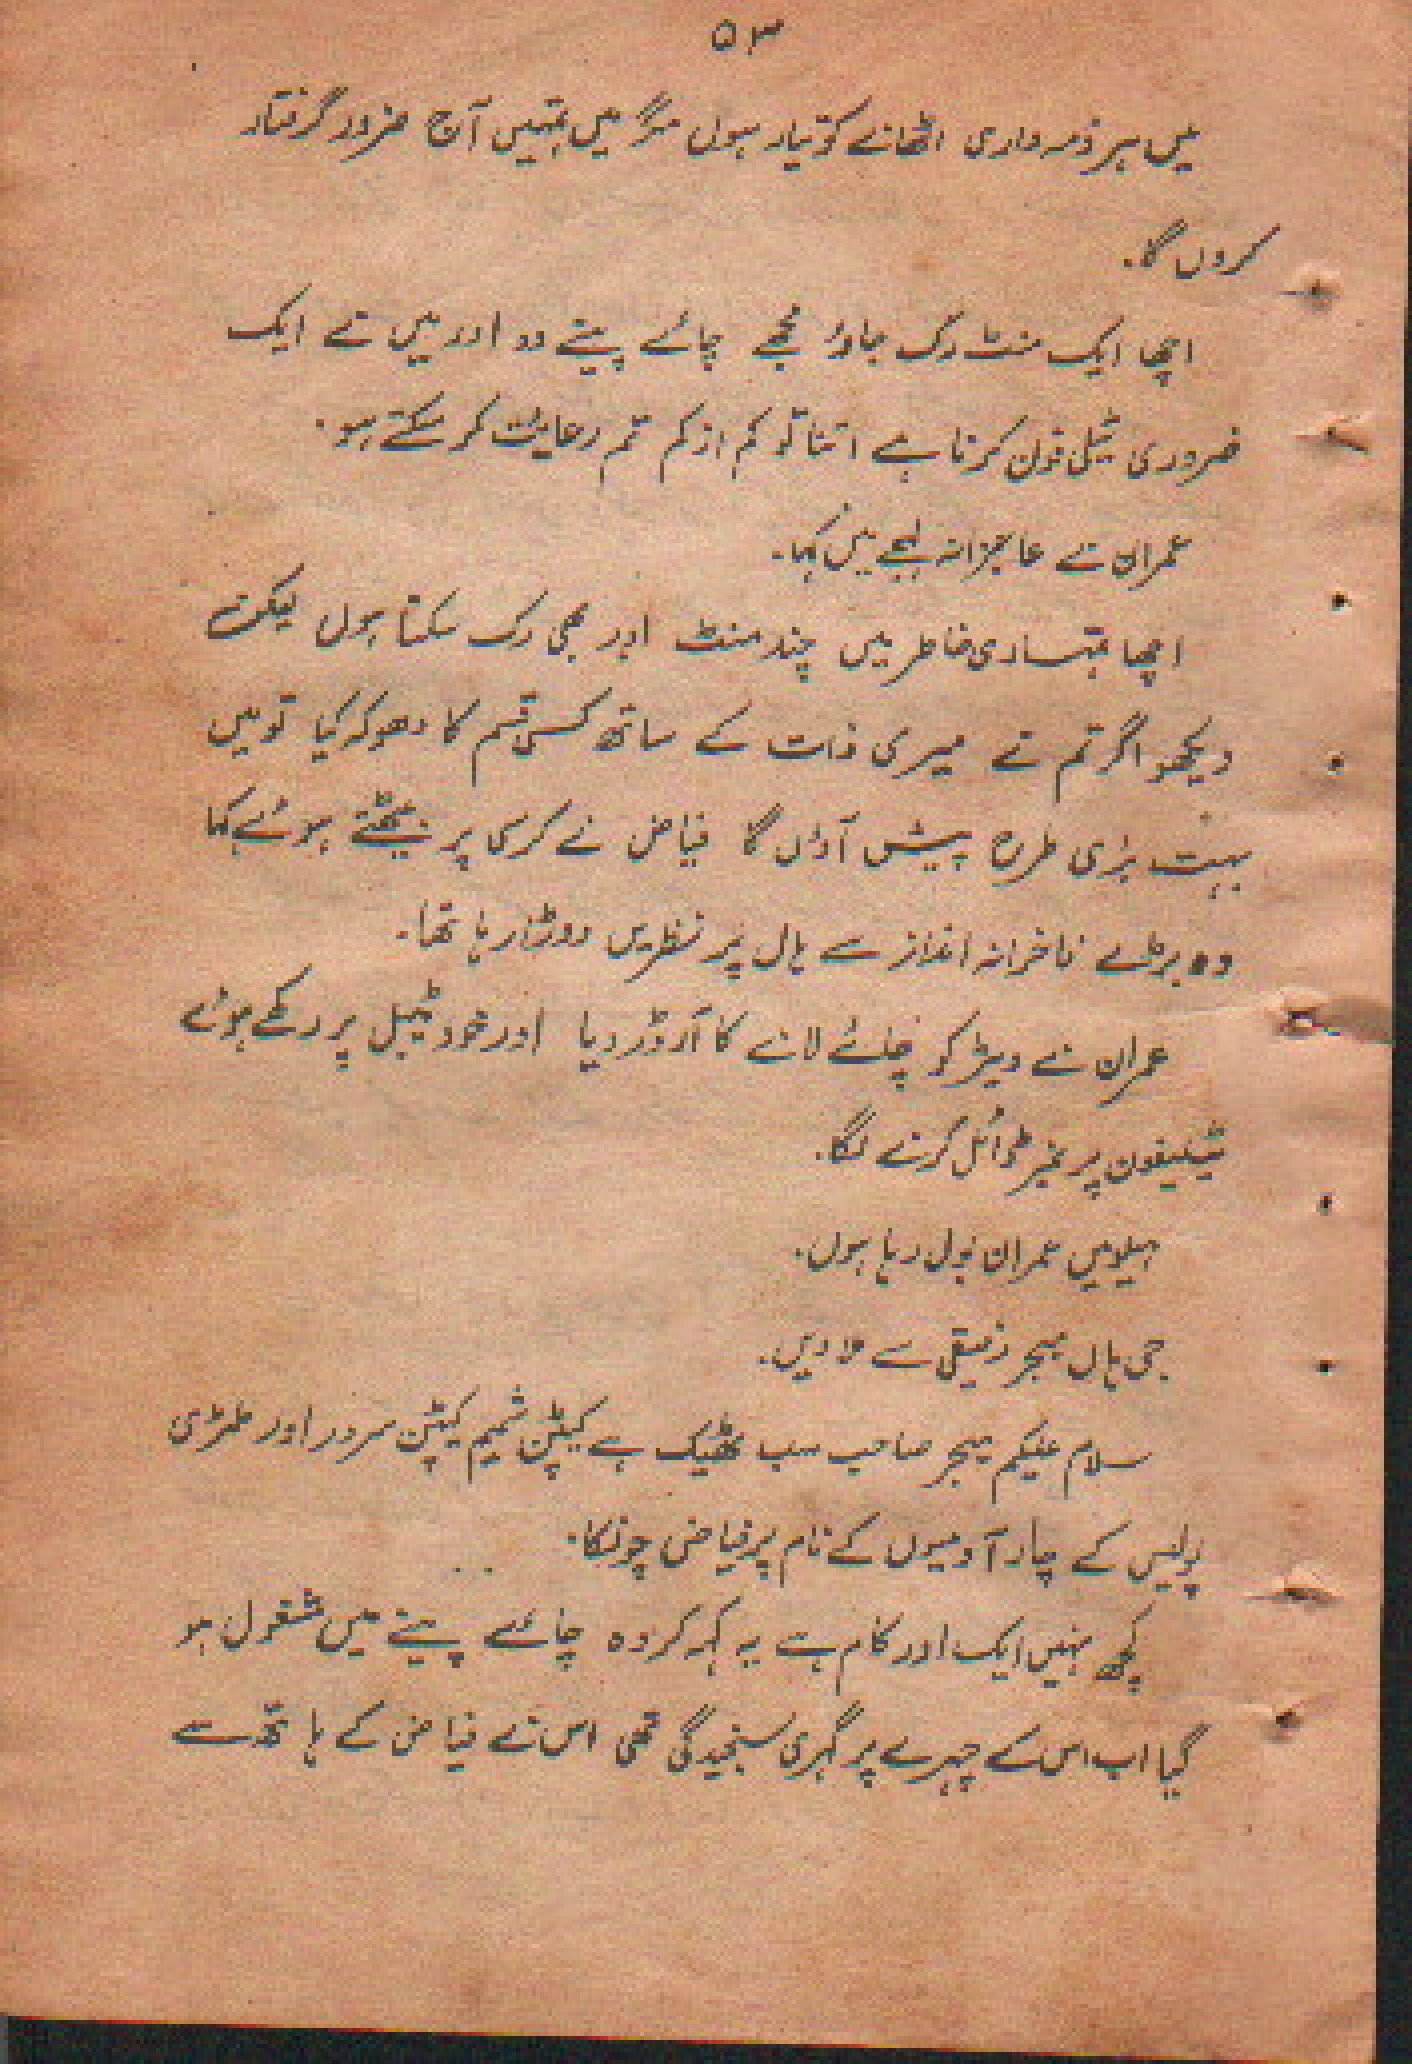 ۵۳
میں ہر ذمہ داری اٹھانے کو تیار ہوں مگر میں تمہیں آج ضرور گرفتار
کروں گا۔
اچھا ایک منٹ رک جاؤ مجھے چائے پینے دو اور میں نے ایک
ضروری ٹیلی فون کرنا ہے اتنا تو کم از کم تم رعایت کر سکتے ہو۔
عمران نے عاجزانہ لہجے میں کہا۔
اچھا تمہاری خاطر میں چند منٹ اور بھی رک سکتا ہوں لیکن
دیکھو اگر تم نے میری ذات کے ساتھ کسی قسم کا دھوکہ کیا تو میں
بہت بری طرح پیش آؤں گا فیاض نے کرسی پر بیٹھتے ہوئے کہا
وہ بڑے فاخرانہ انداز سے ہال پر نظریں دوڑا رہا تھا۔
عمران نے ویٹر کو چائے لانے کا آرڈر دیا اور خود ٹیبل پر رکھے ہوئے
ٹیلیفون پر نمبر ڈائل کرنے لگا۔
ہیلو میں عمران بول رہا ہوں۔
جی ہاں میجر رفیقی سے ملا دیں۔
سلام علیکم میجر صاحب سب ٹھیک ہے کیپٹن شمیم کیپٹن سرور اور ملٹری
پولیس کے چار آدمیوں کے نام پر فیاض چونکا۔
کچھ نہیں ایک اور کام ہے یہ کہہ کر وہ چائے پینے میں مشغول ہو
گیا اب اس کے چہرے پر گہری سنجیدگی تھی اس نے فیاض کے ہاتھ سے